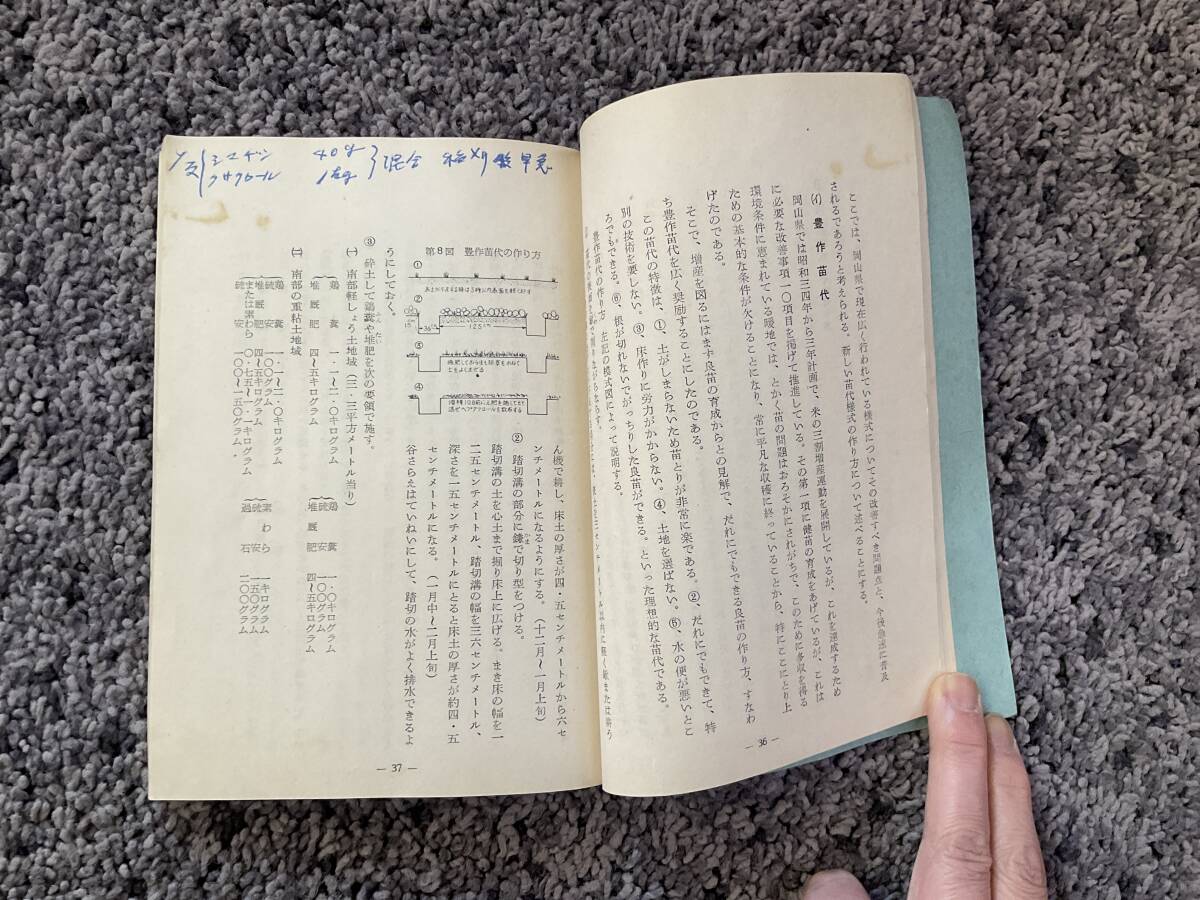 ここでは、岡山県で現在広く行われている様式についてその改善すべき問題点と、今後急速に普及
されるであろうと考えられる。新しい苗代様式の作り方について述べることにする。
(イ) 豊作苗代
岡山県では昭和三四年から三年計画で、米の三割増産運動を展開しているが、これを達成するため
に必要な改善事項一〇項目を掲げて推進している。その第一項に健苗の育成をあげているが、これは
環境条件に恵まれている暖地では、とかく苗の問題はおろそかにされがちで、このために多収を得る
ための基本的な条件が欠けることになり、常に平凡な収穫に終っていることから、特にここにとり上
げたのである。
そこで、増産を図るにはまず良苗の育成からとの見解で、だれにでもできる良苗の作り方、すなわ
ち豊作苗代を広く奨励することにしたのである。
この苗代の特徴は、①、土がしまらないため苗とりが非常に楽である。②、だれにでもできて、特
別の技術を要しない。③、床作りに労力がかからない。④、土地を選ばない。⑤、水の便が悪いとこ
ろでもできる。⑥、根が切れないでがっちりした良苗ができる。といった理想的な苗代である。
豊作苗代の作り方 左記の模式図によって説明する。
— 36 —
シマヂン 40g
クサクロール 1kg
混合
早急
第8図 豊作苗代の作り方
①
②
15
36cm
125cm
③
④
ん機で耕し、床土の厚さが四・五センチメートルから六セ
ンチメートルになるようにする。(十二月〜一月上旬)
② 踏切溝の部分に鎌で切り型をつける。
かま
踏切溝の土を心土まで掘り床上に広げる。まき床の幅を一
二五センチメートル、踏切溝の幅を三六センチメートル、
深さを一五センチメートルにとると床土の厚さが約四・五
センチメートルになる。(一月中〜二月上旬)
谷さらえはていねいにして、踏切の水がよく排水できるよ
うにしておく。
③ 砕土して鶏糞や堆肥を次の要領で施す。
ふん たい
(一) 南部軽しょう土地域(三・三平方メートル当り)
鶏糞 一・一〜二・〇キログラム
堆厩肥 四〜五キログラム
鶏糞 一・〇キログラム
硫安 一〇〇グラム
堆厩肥 四〜五キログラム
(二) 南部の重粘土地域
鶏糞 一・一〜二・〇キログラム
硫安 一〇〇グラム
堆厩肥 四〜五キログラム
または素わら 〇・七五〜一・一キログラム
硫安 一〇〇〜一五〇グラム・
素わら 一キログラム
硫安 一五〇グラム
過石 二〇〇グラム
— 37 —